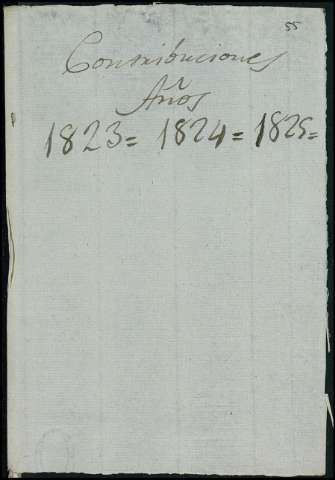 55
Contribuciones
Años
1823= 1824= 1825=